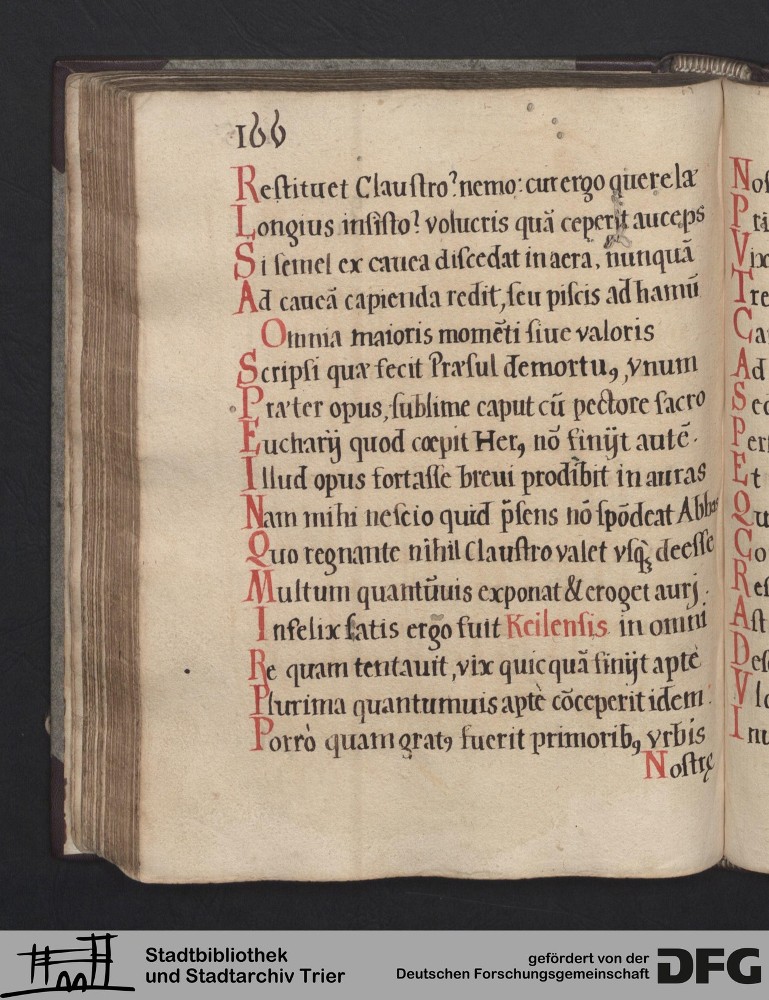 166
Restituet Claustro? nemo: cur ergo querelæ
Longius insisto? volucris quā ceperit auceps
Si semel ex cauea discedat in aera, nunquā
Ad caueā capienda redit, seu piscis ad hamū
Omnia maioris momēti siue valoris
Scripsi quæ fecit Præsul demortuꝰ, vnum
Præter opus, sublime caput cū pectore sacro
Eucharij quod cœpit Herꝰ, nō finijt autē.
Illud opus fortasse breui prodibit in auras
Nam mihi nescio quid p̄sens nō spōdeat Abbas
Quo regnante nihil Claustro valet vsq̢ deesse
Multum quantūuis exponat & eroget aurj.
Infelix satis ergo fuit Keilensis in omni
Re quam tentauit, vix quicquā finijt aptè
Plurima quantumuis aptè cōceperit idem.
Porrò quam gratꝰ fuerit primoribꝰ vrbis
Nostrę
Nos
Pri
Vix
Tre
Ca
Ad
Sed
Per
Et
Qu
Co
Res
Ast
Des
Vl
Inu
Stadtbibliothek
und Stadtarchiv Trier
gefördert von der
Deutschen Forschungsgemeinschaft
DFG